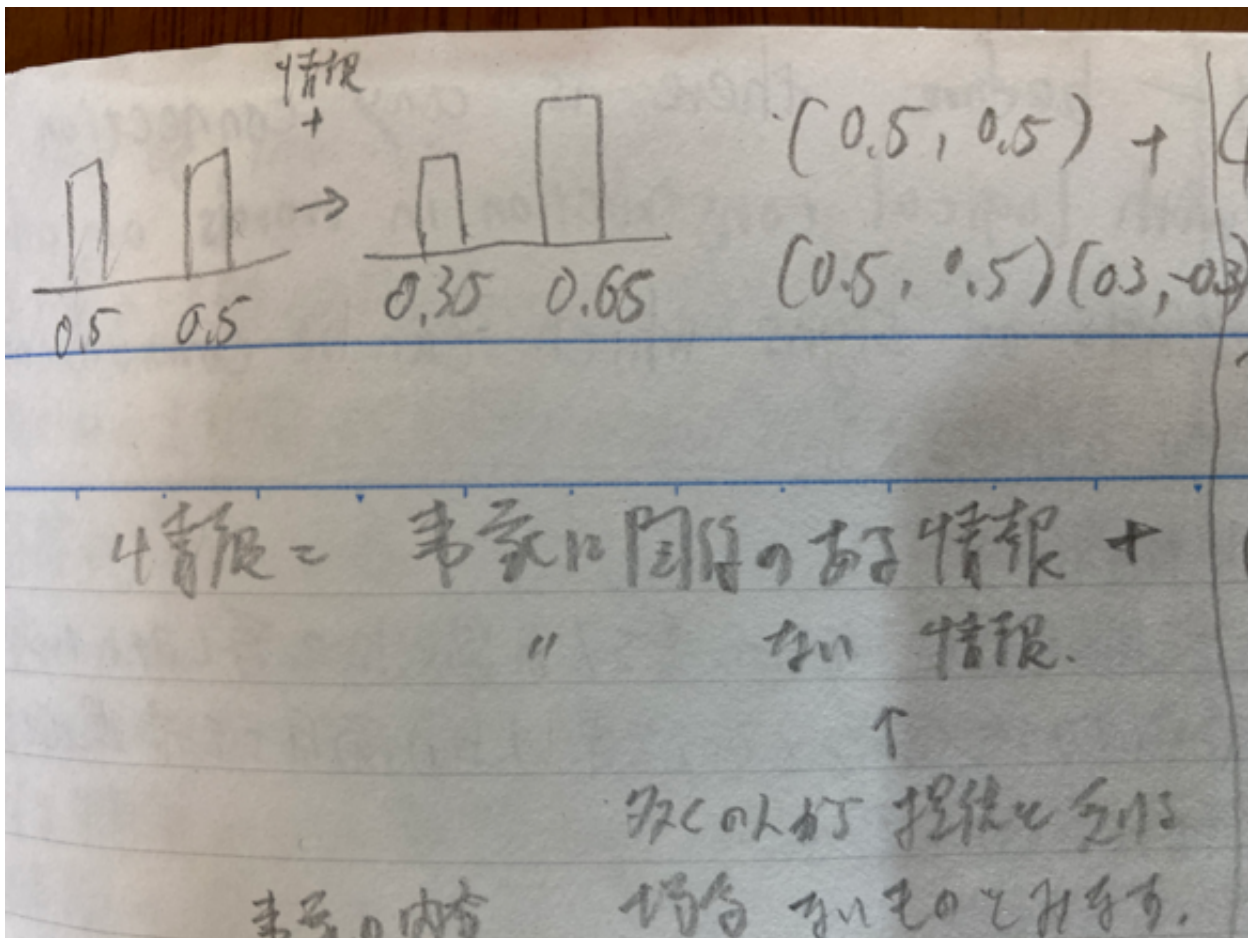 情報
+
→
0.5 0.5 0.35 0.65
(0.5, 0.5) + (
(0.5, 0.5)(03, -0.3)
情報 = 事象に関係のある情報 +
〃 ない 情報.
↑
多くの人から 提供を受ける
場合 ないものとみなす.
事象の内容